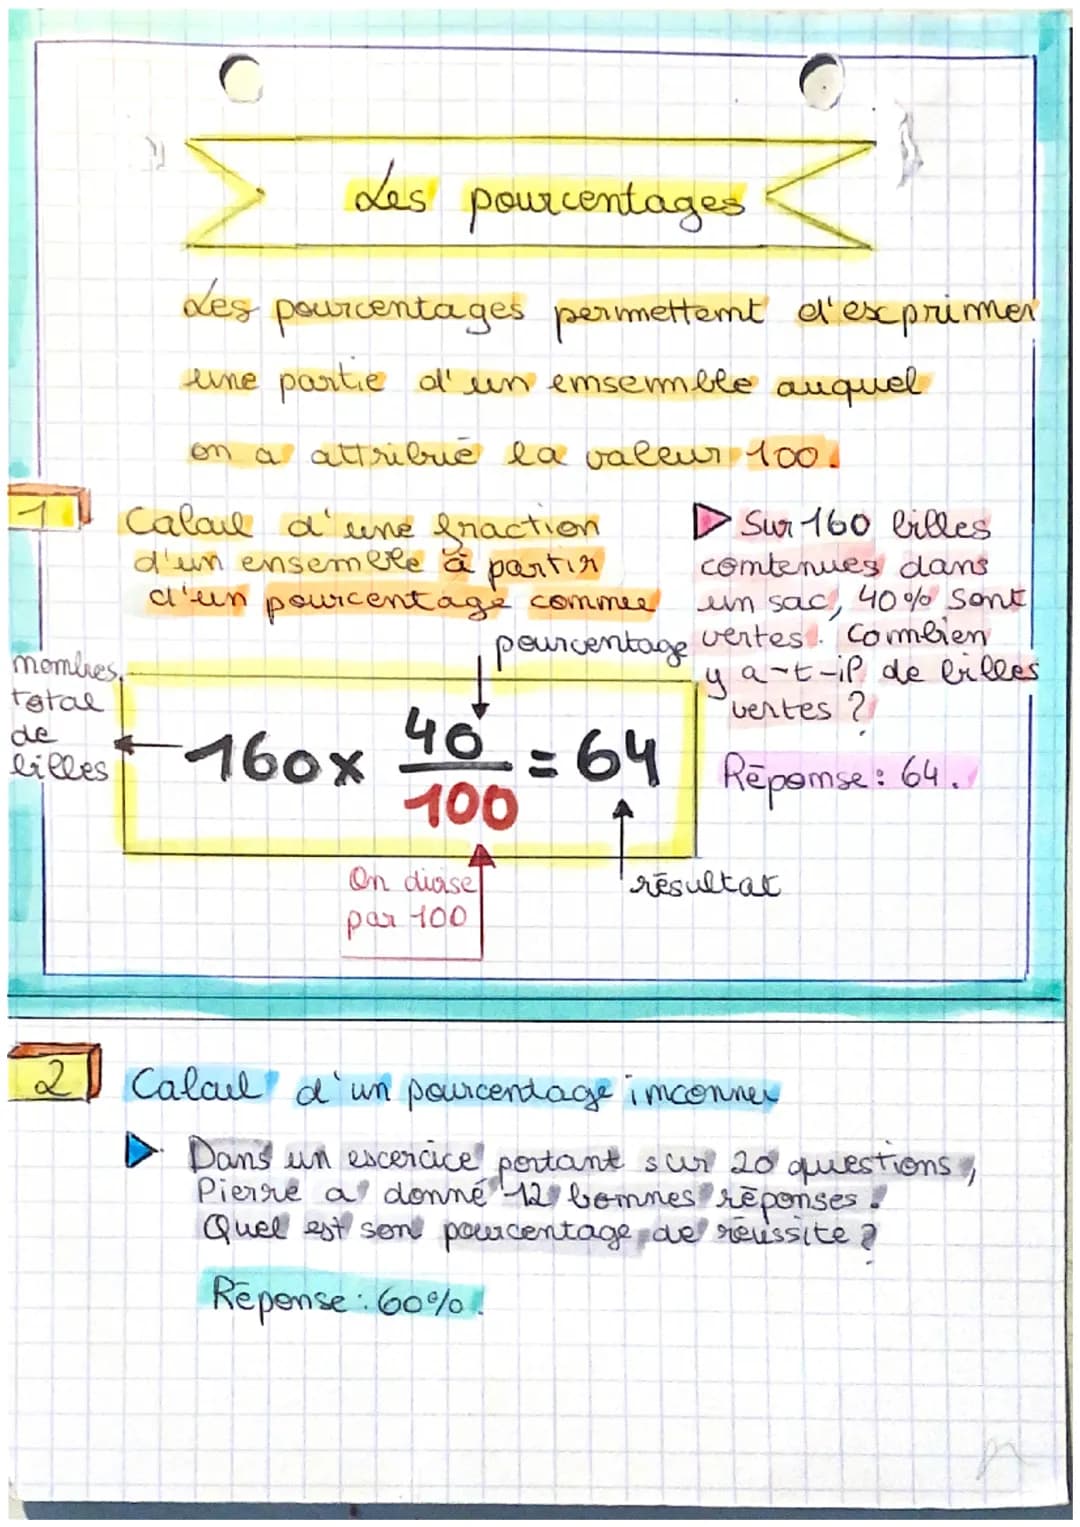 Les pourcentages
Les pourcentages permettemt d'exprimer
une partie d'un emsemmble auquel
on a attribué la valeur 100.
1
Calcul d'une fraction
d'un ensemble à partir
d'un pourcentage commee
Sur 160 billes
comtenues dans
un sac, 40% sont
vertes. Combien
y a-t-il de billes
vertes ?
Réponse : 64.
pourcentage
nombres
total
de
billes
160 x 40/100 = 64
On divise
par 100
résultat
2
Calcul d'un pourcentage imconnu
Dans un excercice portant sur 20 questions,
Pierre a donné 12 bonnes réponses.
Quel est son pourcentage de réussite ?
Réponse : 60%.